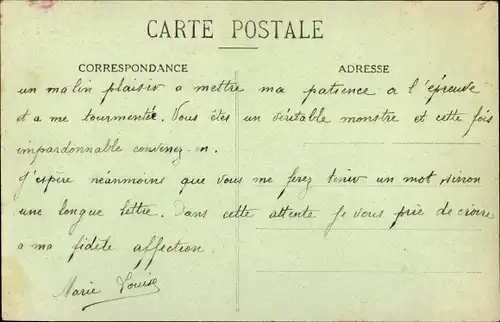 CARTE POSTALE
CORRESPONDANCE
ADRESSE
un malin plaisir a mettre ma patience a l'épreuve
et a me tourmenter. Vous êtes un véritable monstre et cette fois
impardonnable convenez-en.
J'espère néanmoins que vous me ferez tenir un mot, sinon
une longue lettre. Dans cette attente je vous prie de croire
a ma fidèle affection.
Marie Louise